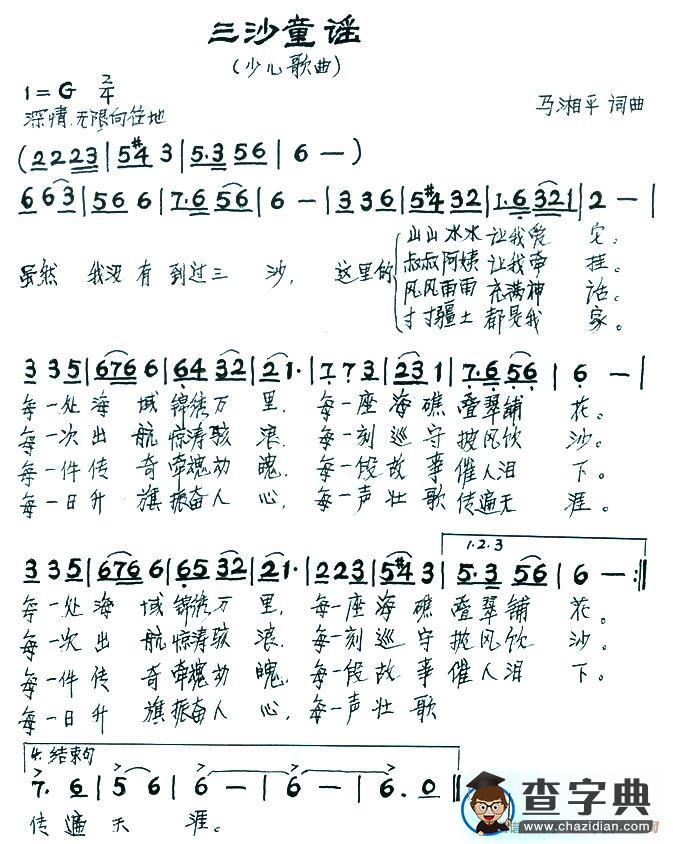 三沙童谣
(少儿歌曲)
1=G 2/4
马湘平 词曲
深情.无限向往地
(2 2 2 3 | 5 #4 3 | 5. 3 5 6 | 6 — )
6 6 3 | 5 6 6 | 7. 6 5 6 | 6 — | 3 3 6 | 5 #4 3 2 | 1. 6 3 2 1 | 2 — |
虽然 我没有到过三 沙, 这里的
山山水水让我爱 它.
叔叔阿姨让我牵 挂.
风风雨雨充满神 话.
寸寸疆土都是我 家.
3 3 5 | 6 7 6 6 | 6 4 3 2 | 2 1. | 7 7 3 | 2 3 1 | 7. 6 5 6 | 6 — |
每一处海 域锦绣万 里. 每一座海礁叠翠铺 花。
每一次出 航惊涛骇 浪. 每一刻巡守披风饮 沙。
每一件传 奇牵魂动 魄. 每一段故事催人泪 下。
每一日升 旗振奋人 心. 每一声壮歌传遍天 涯。
1.2.3
3 3 5 | 6 7 6 6 | 6 5 3 2 | 2 1. | 2 2 3 | 5 #4 3 | 5. 3 5 6 | 6 — :||
每一处海 域锦绣万 里. 每一座海礁叠翠铺 花。
每一次出 航惊涛骇 浪. 每一刻巡守披风饮 沙。
每一件传 奇牵魂动 魄. 每一段故事催人泪 下。
每一日升 旗振奋人 心. 每一声壮歌
4. 结束句
7. 6 | 5 6 | 6 — | 6 — | 6. 0 ||
传遍天 涯。
查字典
www.chazidian.com